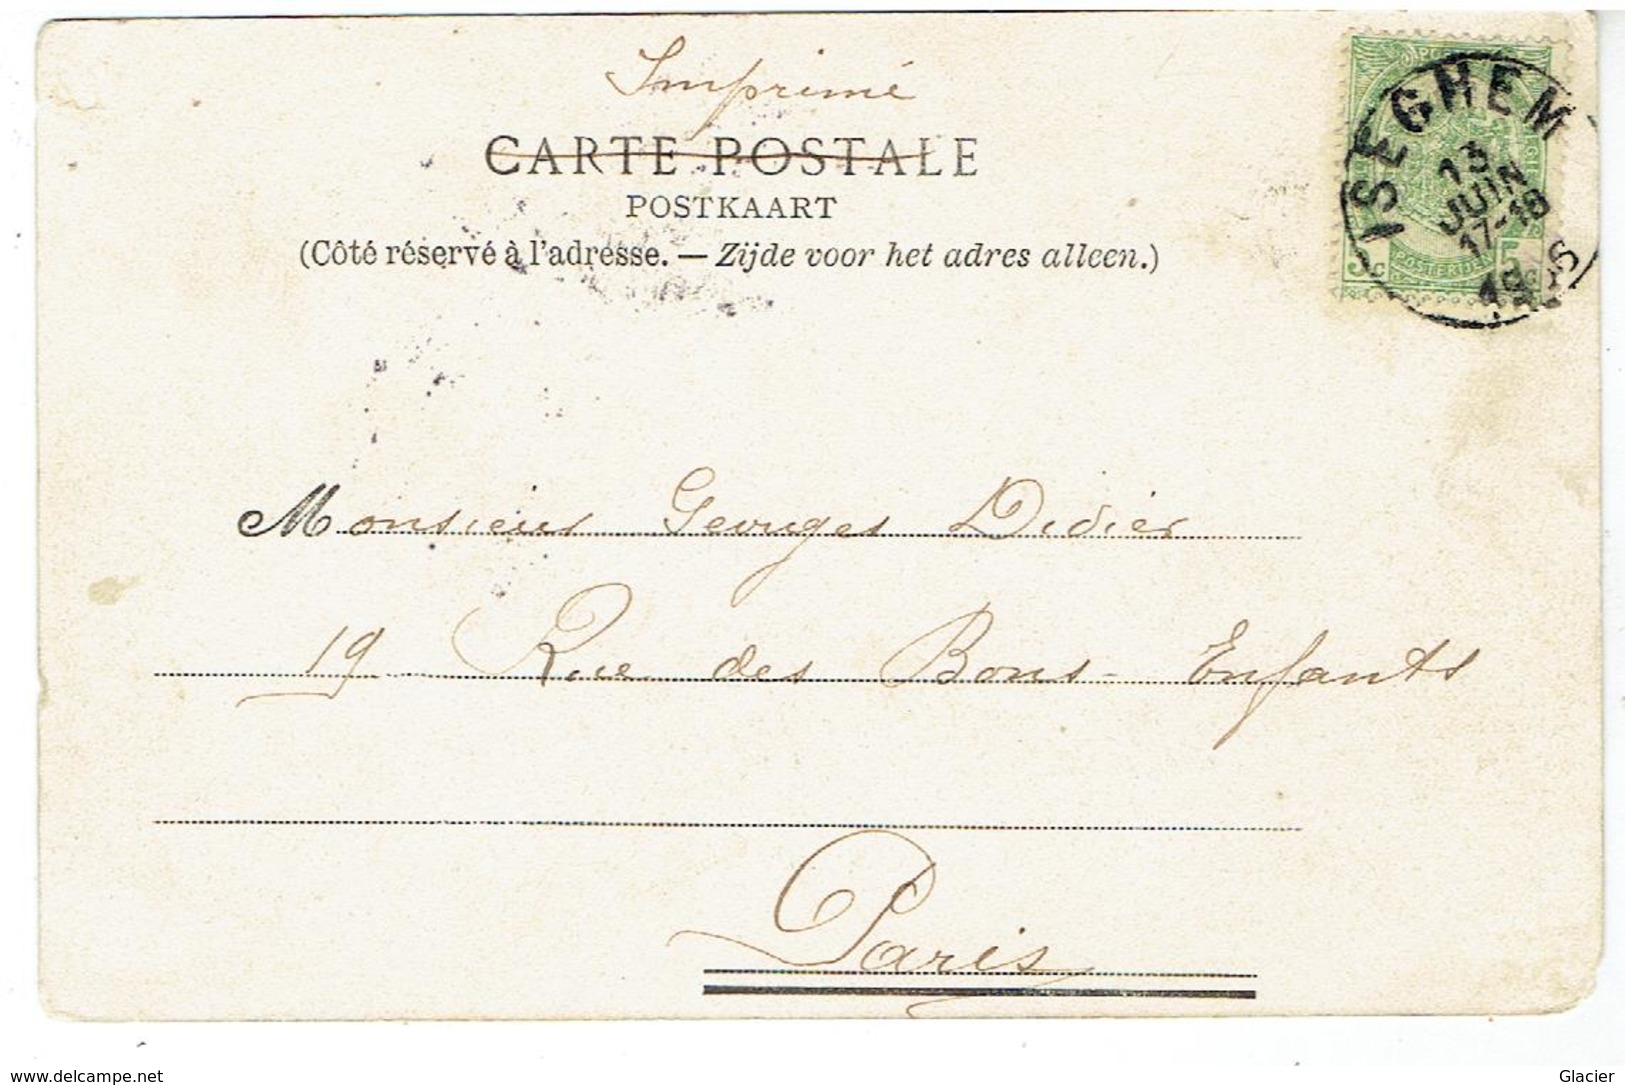 Imprimé
CARTE POSTALE
POSTKAART
(Côté réservé à l'adresse. — Zijde voor het adres alleen.)
ISEGHEM
13
JUIN
17-18
5c 5c
POSTERIJEN
Monsieur Georges Didier
19 Rue des Bons-Enfants
Paris
www.delcampe.net
Glacier